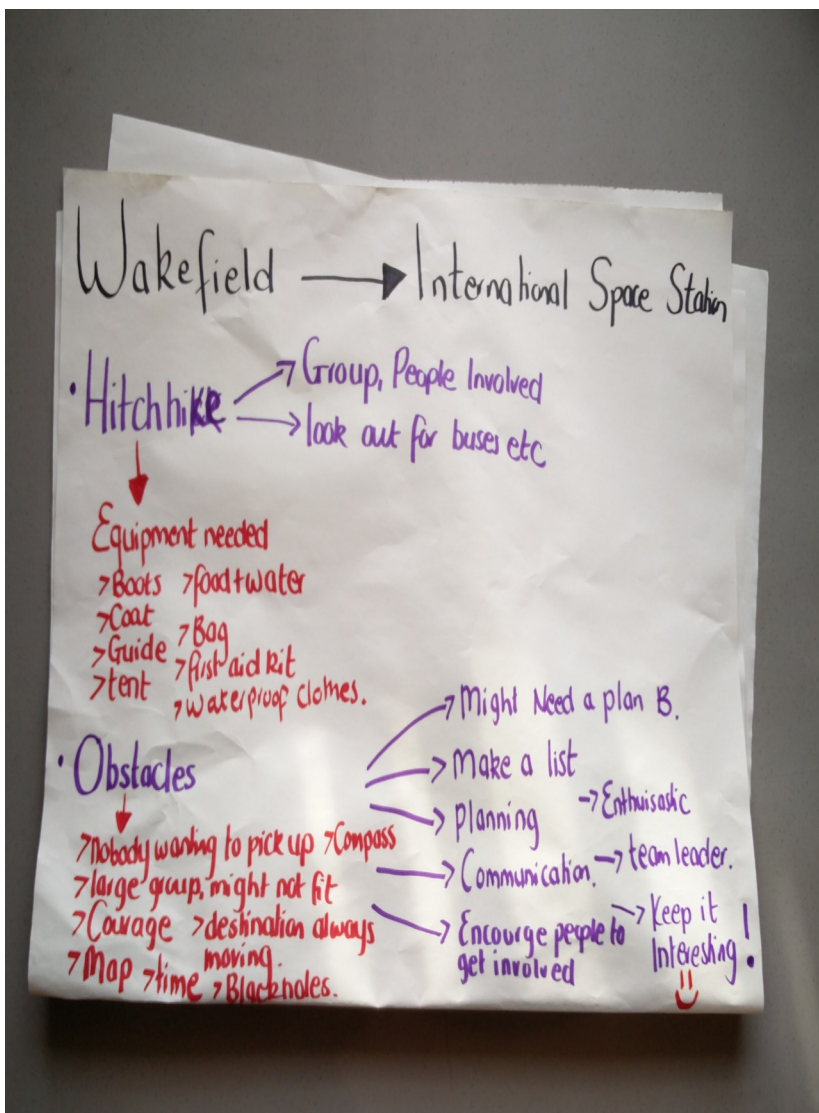 Wakefield → International Space Station
· Hitchhike
→ Group, People Involved
→ look out for buses etc
Equipment needed
> Boots > food + water
> Coat
> Bag
> Guide
> first aid kit
> tent
> waterproof clothes.
· Obstacles
> Nobody wanting to pick up > Compass
> large group, might not fit
> Courage > destination always moving.
> Map > time > Blackholes.
→ Might Need a plan B.
→ Make a list
→ Planning
→ Enthuisastic
→ Communication. → team leader.
→ Encourge people to
get involved
→ Keep it
Interesting!